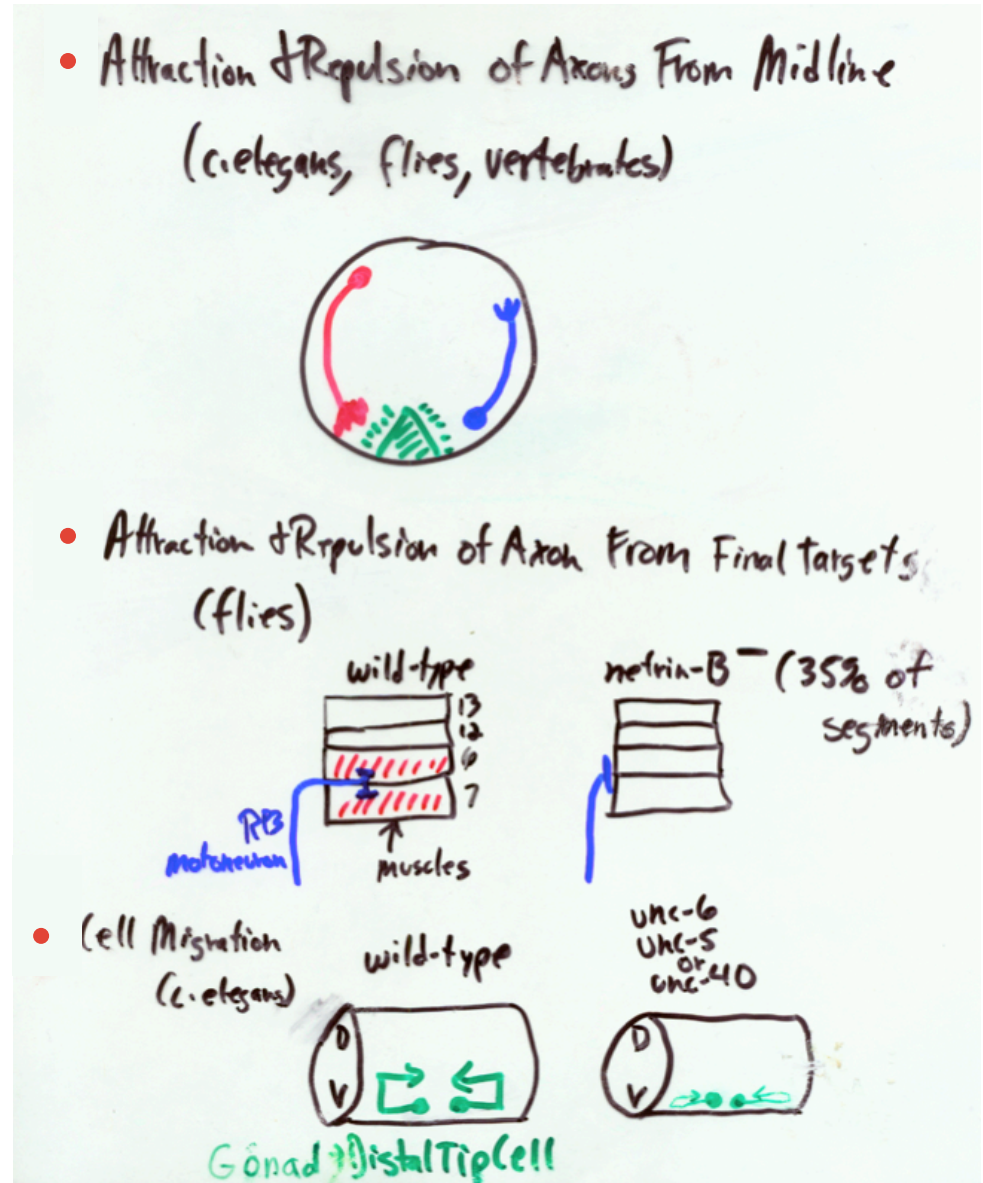 Attraction & Repulsion of Axons From Midline
(c.elegans, flies, vertebrates)
Attraction & Repulsion of Axon From Final Targets
(flies)
wild-type
netrin-B⁻ (35% of
segments)
13
12
6
7
RP3
motoneuron
muscles
Cell Migration
(c.elegans)
wild-type
unc-6
unc-5
or
unc-40
D
V
D
V
Gonad → Distal Tip Cell